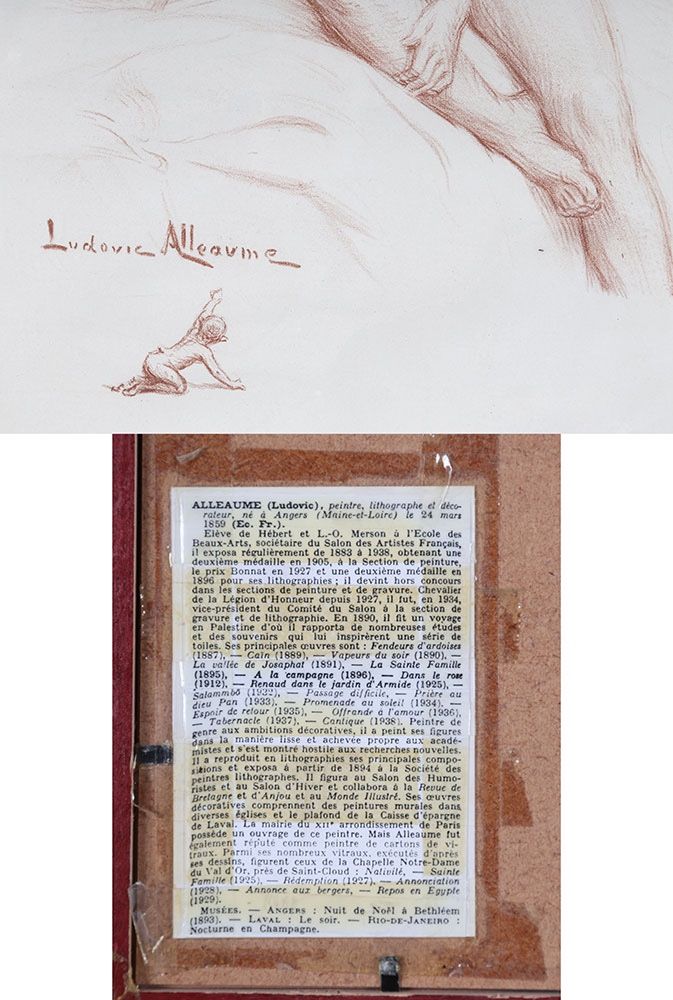 Ludovic Alleaume
ALLEAUME (Ludovic), peintre, lithographe et déco-
rateur, né à Angers (Maine-et-Loire) le 24 mars
1859 (Ec. Fr.).
Elève de Hébert et L.-O. Merson à l'Ecole des
Beaux-Arts, sociétaire du Salon des Artistes Français,
il exposa régulièrement de 1883 à 1938, obtenant une
deuxième médaille en 1905, à la Section de peinture,
le prix Bonnat en 1927 et une deuxième médaille en
1896 pour ses lithographies ; il devint hors concours
dans les sections de peinture et de gravure. Chevalier
de la Légion d'Honneur depuis 1927, il fut, en 1934,
vice-président du Comité du Salon à la section de
gravure et de lithographie. En 1890, il fit un voyage
en Palestine d'où il rapporta de nombreuses études
et des souvenirs qui lui inspirèrent une série de
toiles. Ses principales œuvres sont : Fendeurs d'ardoises
(1887), — Caïn (1889), — Vapeurs du soir (1890), —
La vallée de Josaphat (1891), — La Sainte Famille
(1895), — A la campagne (1896), — Dans le rose
(1912), — Renaud dans le jardin d'Armide (1925), —
Salammbô (1932), — Passage difficile, — Prière au
dieu Pan (1933), — Promenade au soleil (1934), —
Espoir de retour (1935), — Offrande à l'amour (1936),
— Tabernacle (1937), — Cantique (1938). Peintre de
genre aux ambitions décoratives, il a peint ses figures
dans la manière lisse et achevée propre aux acadé-
mistes et s'est montré hostile aux recherches nouvelles.
Il a reproduit en lithographies ses principales compo-
sitions et exposa à partir de 1894 à la Société des
peintres lithographes. Il figura au Salon des Humo-
ristes et au Salon d'Hiver et collabora à la Revue de
Bretagne et d'Anjou et au Monde Illustré. Ses œuvres
décoratives comprennent des peintures murales dans
diverses églises et le plafond de la Caisse d'épargne
de Laval. La mairie du XIIe arrondissement de Paris
possède un ouvrage de ce peintre. Mais Alleaume fut
également réputé comme peintre de cartons de vi-
traux. Parmi ses nombreux vitraux, exécutés d'après
ses dessins, figurent ceux de la Chapelle Notre-Dame
du Val d'Or, près de Saint-Cloud : Nativité, — Sainte
Famille (1925), — Rédemption (1927), — Annonciation
(1928), — Annonce aux bergers, — Repos en Egypte
(1929).
MUSÉES. — ANGERS : Nuit de Noël à Bethléem
(1893). — LAVAL : Le soir. — RIO-DE-JANEIRO :
Nocturne en Champagne.